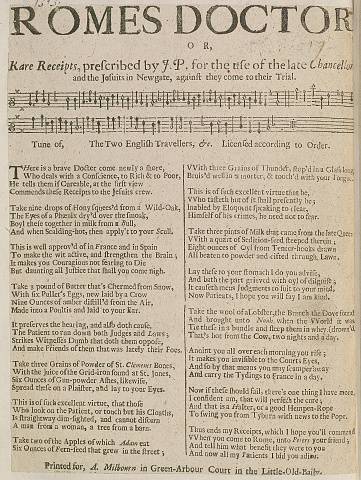 ROMES DOCTOR
OR,
Rare Receipts, prescribed by J. P. for the use of the late Chancellor
and the Jesuits in Newgate, against they come to their Trial.
Tune of, The Two English Travellers, &c. Licensed according to Order.
There is a brave Doctor come newly a shore,
Who deals with a Conscience, to Rich & to Poor,
He tells them if Cureable, at the first view
Commends these Receipts to the Jesuits crew.
Take nine drops of Hony squeez'd from a Wild-Oak,
The Eyes of a Phœnix dry'd over the smoak,
Boyl these together in milk from a Bull,
And when Scalding-hot, then apply't to your Scull.
This is well approv'd of in France and in Spain
To make the wit active, and strengthen the Brain;
It makes you Couragious not fearing to Die
But daunting all Justice that shall you come nigh.
Take 3 pound of Butter that's Chermed from Snow,
With six Pullet's Eggs, new laid by a Crow
Nine Ounces of amber distill'd from the Air,
Made into a Poultis and laid to your Ear.
It preserves the hearing, and also doth cause,
The Patient to run down both Judges and Laws;
Strikes Witnesses Dumb that doth them oppose,
And make Friends of them that was lately their Foes.
Take three Grains of Powder of St. Clements Bones,
With the juice of the Grid-iron found at St. Jones,
Six Ounces of Gun-powder Ashes, likewise,
Spread these on a Plaister, and lay to your Eyes.
This is of such excellent virtue, that those
Who look on the Patient, or touch but his Cloaths,
Is straightway dim-sighted, and cannot discern
A man from a woman, a tree from a barn.
Take two of the Apples of which Adam eat
Six Ounces of Fern-seed that grew in the street;
With three Grains of Thunder, stop'd in a Glass long,
Bruis'd well in a morter, & touch'd with your Tongue.
This is of such excellent virtue that he,
Who tasteth but of it shall presently be;
Inabled by Eloquent speaking to clear,
Himself of his crimes, he need not to fear.
Take three pints of Milk that came from the late Queen
With a quart of Sedition-seed steeped therein;
Eight ounces of Oyl from Tenter-hooks drawn
All beaten to powder and cifted through Lawn.
Lay these to your stomach I do you advise,
And bath the part grieved with oyl of disguise;
It causeth mens Judgments to suit to your mind,
Now Patients, I hope you will say I am kind.
Take the wool of a Lobster, the Breath the Dove found
And brought not to Noah when the World it was
Tie these in a bundle and steep them in whey. (drown'd
That's hot from the Cow, two nights and a day.
Anoint you all over each morning you rise;
It makes you invisible to the Courts Eyes,
And so by that means you may scamper away
And carry the Tydings to France in a day.
Now if these should fail, there's one thing I have more,
I confident am, that will perfect the cure;
And that is a Halter, or a good Hempen-Rope
To swing you from Tyburn with news to the Pope.
Thus ends my Receipts, which I hope you'll commend
When you come to Rome, unto Petre your friend;
And tell him what benefit they were to you
And now all my Patients I bid you adieu.
Printed for, A. Milbourn in Green-Arbour Court in the Little-Old-Baily.